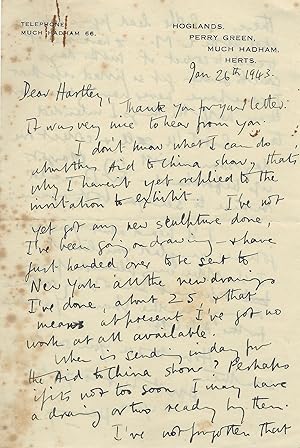 TELEPHONE
MUCH HADHAM 66.
HOGLANDS,
PERRY GREEN,
MUCH HADHAM,
HERTS.
Jan 26th 1943.
Dear Hartley, Thank you for your letter.
It was very nice to hear from you.
I don't know what I can do
about this Aid to China show, thats
why I havent yet replied to the
invitation to exhibit. I've not
yet got any new sculpture done,
I've been going on drawing – & have
just handed over to be sent to
New York all the new drawings
I've done, about 25, & that
means at present I've got no
work at all available.
When is sending in day for
the Aid to China show? Perhaps
if its not too soon I may have
a drawing or two ready by then.
I've not forgotten that